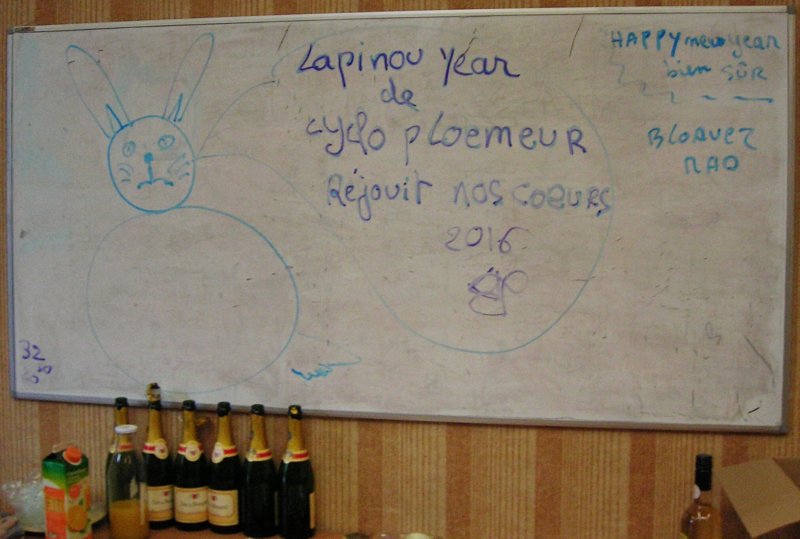 Lapinou Year
de
cyclo ploemeur
Réjouit nos coeurs
2016
HAPPY new year
bien sûr
BLOAVEZ
MAD
32